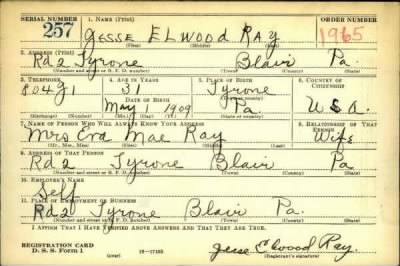 SERIAL NUMBER 1. NAME (Print) ORDER NUMBER
257 Jesse Elwood Ray 1965
(First) (Middle) (Last)
2. ADDRESS (Print)
Rd2 Tyrone Blair Pa.
(Number and street or R. F. D. number) (Town) (County) (State)
3. TELEPHONE 4. AGE IN YEARS 5. PLACE OF BIRTH 6. COUNTRY OF CITIZENSHIP
804J1 31 Tyrone
DATE OF BIRTH (Town or county)
May 1 1909 Pa. U.S.A.
(Exchange) (Number) (Mo.) (Day) (Yr.) (State or country)
7. NAME OF PERSON WHO WILL ALWAYS KNOW YOUR ADDRESS 8. RELATIONSHIP OF THAT PERSON
Mrs Mae Ray Wife
(Mr., Mrs., Miss) (First) (Middle) (Last)
9. ADDRESS OF THAT PERSON
Rd2 Tyrone Blair Pa
(Number and street or R. F. D. number) (Town) (County) (State)
10. EMPLOYER'S NAME
Self
11. PLACE OF EMPLOYMENT OR BUSINESS
Rd2 Tyrone Blair Pa.
(Number and street or R. F. D. number) (Town) (County) (State)
I AFFIRM THAT I HAVE VERIFIED ABOVE ANSWERS AND THAT THEY ARE TRUE.
REGISTRATION CARD
D. S. S. Form 1 (over) Jesse Elwood Ray.
(Registrant's signature)